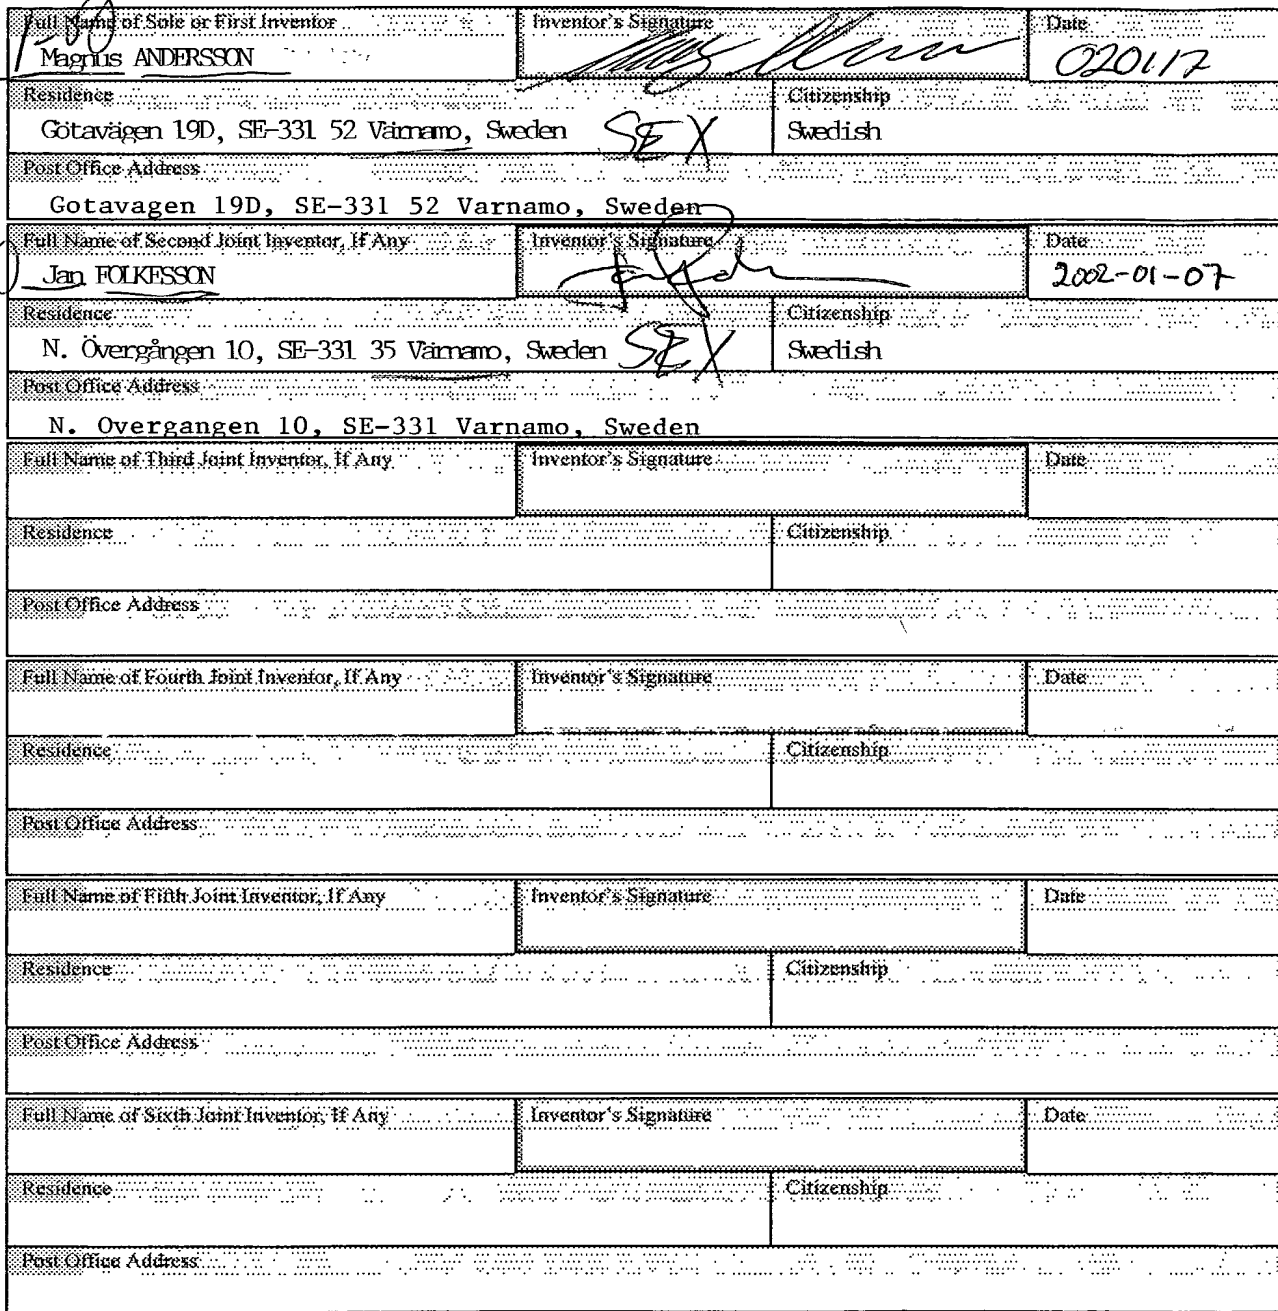 Full Name of Sole or First Inventor
Inventor's Signature
Date
Magnus ANDERSSON
020117
Residence
Citizenship
Götavägen 19D, SE-331 52 Värnamo, Sweden SEX
Swedish
Post Office Address
Gotavagen 19D, SE-331 52 Varnamo, Sweden
Full Name of Second Joint Inventor, If Any
Inventor's Signature
Date
Jan FOLKESSON
2002-01-07
Residence
Citizenship
N. Övergången 10, SE-331 35 Värnamo, Sweden SEX
Swedish
Post Office Address
N. Overgangen 10, SE-331 Varnamo, Sweden
Full Name of Third Joint Inventor, If Any
Inventor's Signature
Date
Residence
Citizenship
Post Office Address
Full Name of Fourth Joint Inventor, If Any
Inventor's Signature
Date
Residence
Citizenship
Post Office Address
Full Name of Fifth Joint Inventor, If Any
Inventor's Signature
Date
Residence
Citizenship
Post Office Address
Full Name of Sixth Joint Inventor, If Any
Inventor's Signature
Date
Residence
Citizenship
Post Office Address